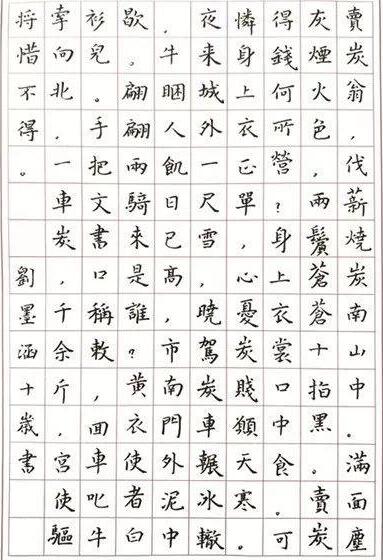 賣炭翁,伐薪燒炭南山中。滿面塵
灰煙火色,兩鬢蒼蒼十指黑。賣炭
得錢何所營?身上衣裳口中食。可
憐身上衣正單,心憂炭賤願天寒。
夜來城外一尺雪,曉駕炭車輾冰轍
.牛睏人飢日已高,市南門外泥中
歇。翩翩兩騎來是誰?黃衣使者白
衫兒。手把文書口稱敕,回車叱牛
牽向北,一車炭,千余斤,宮使驅
將惜不得。劉墨涵十歲書